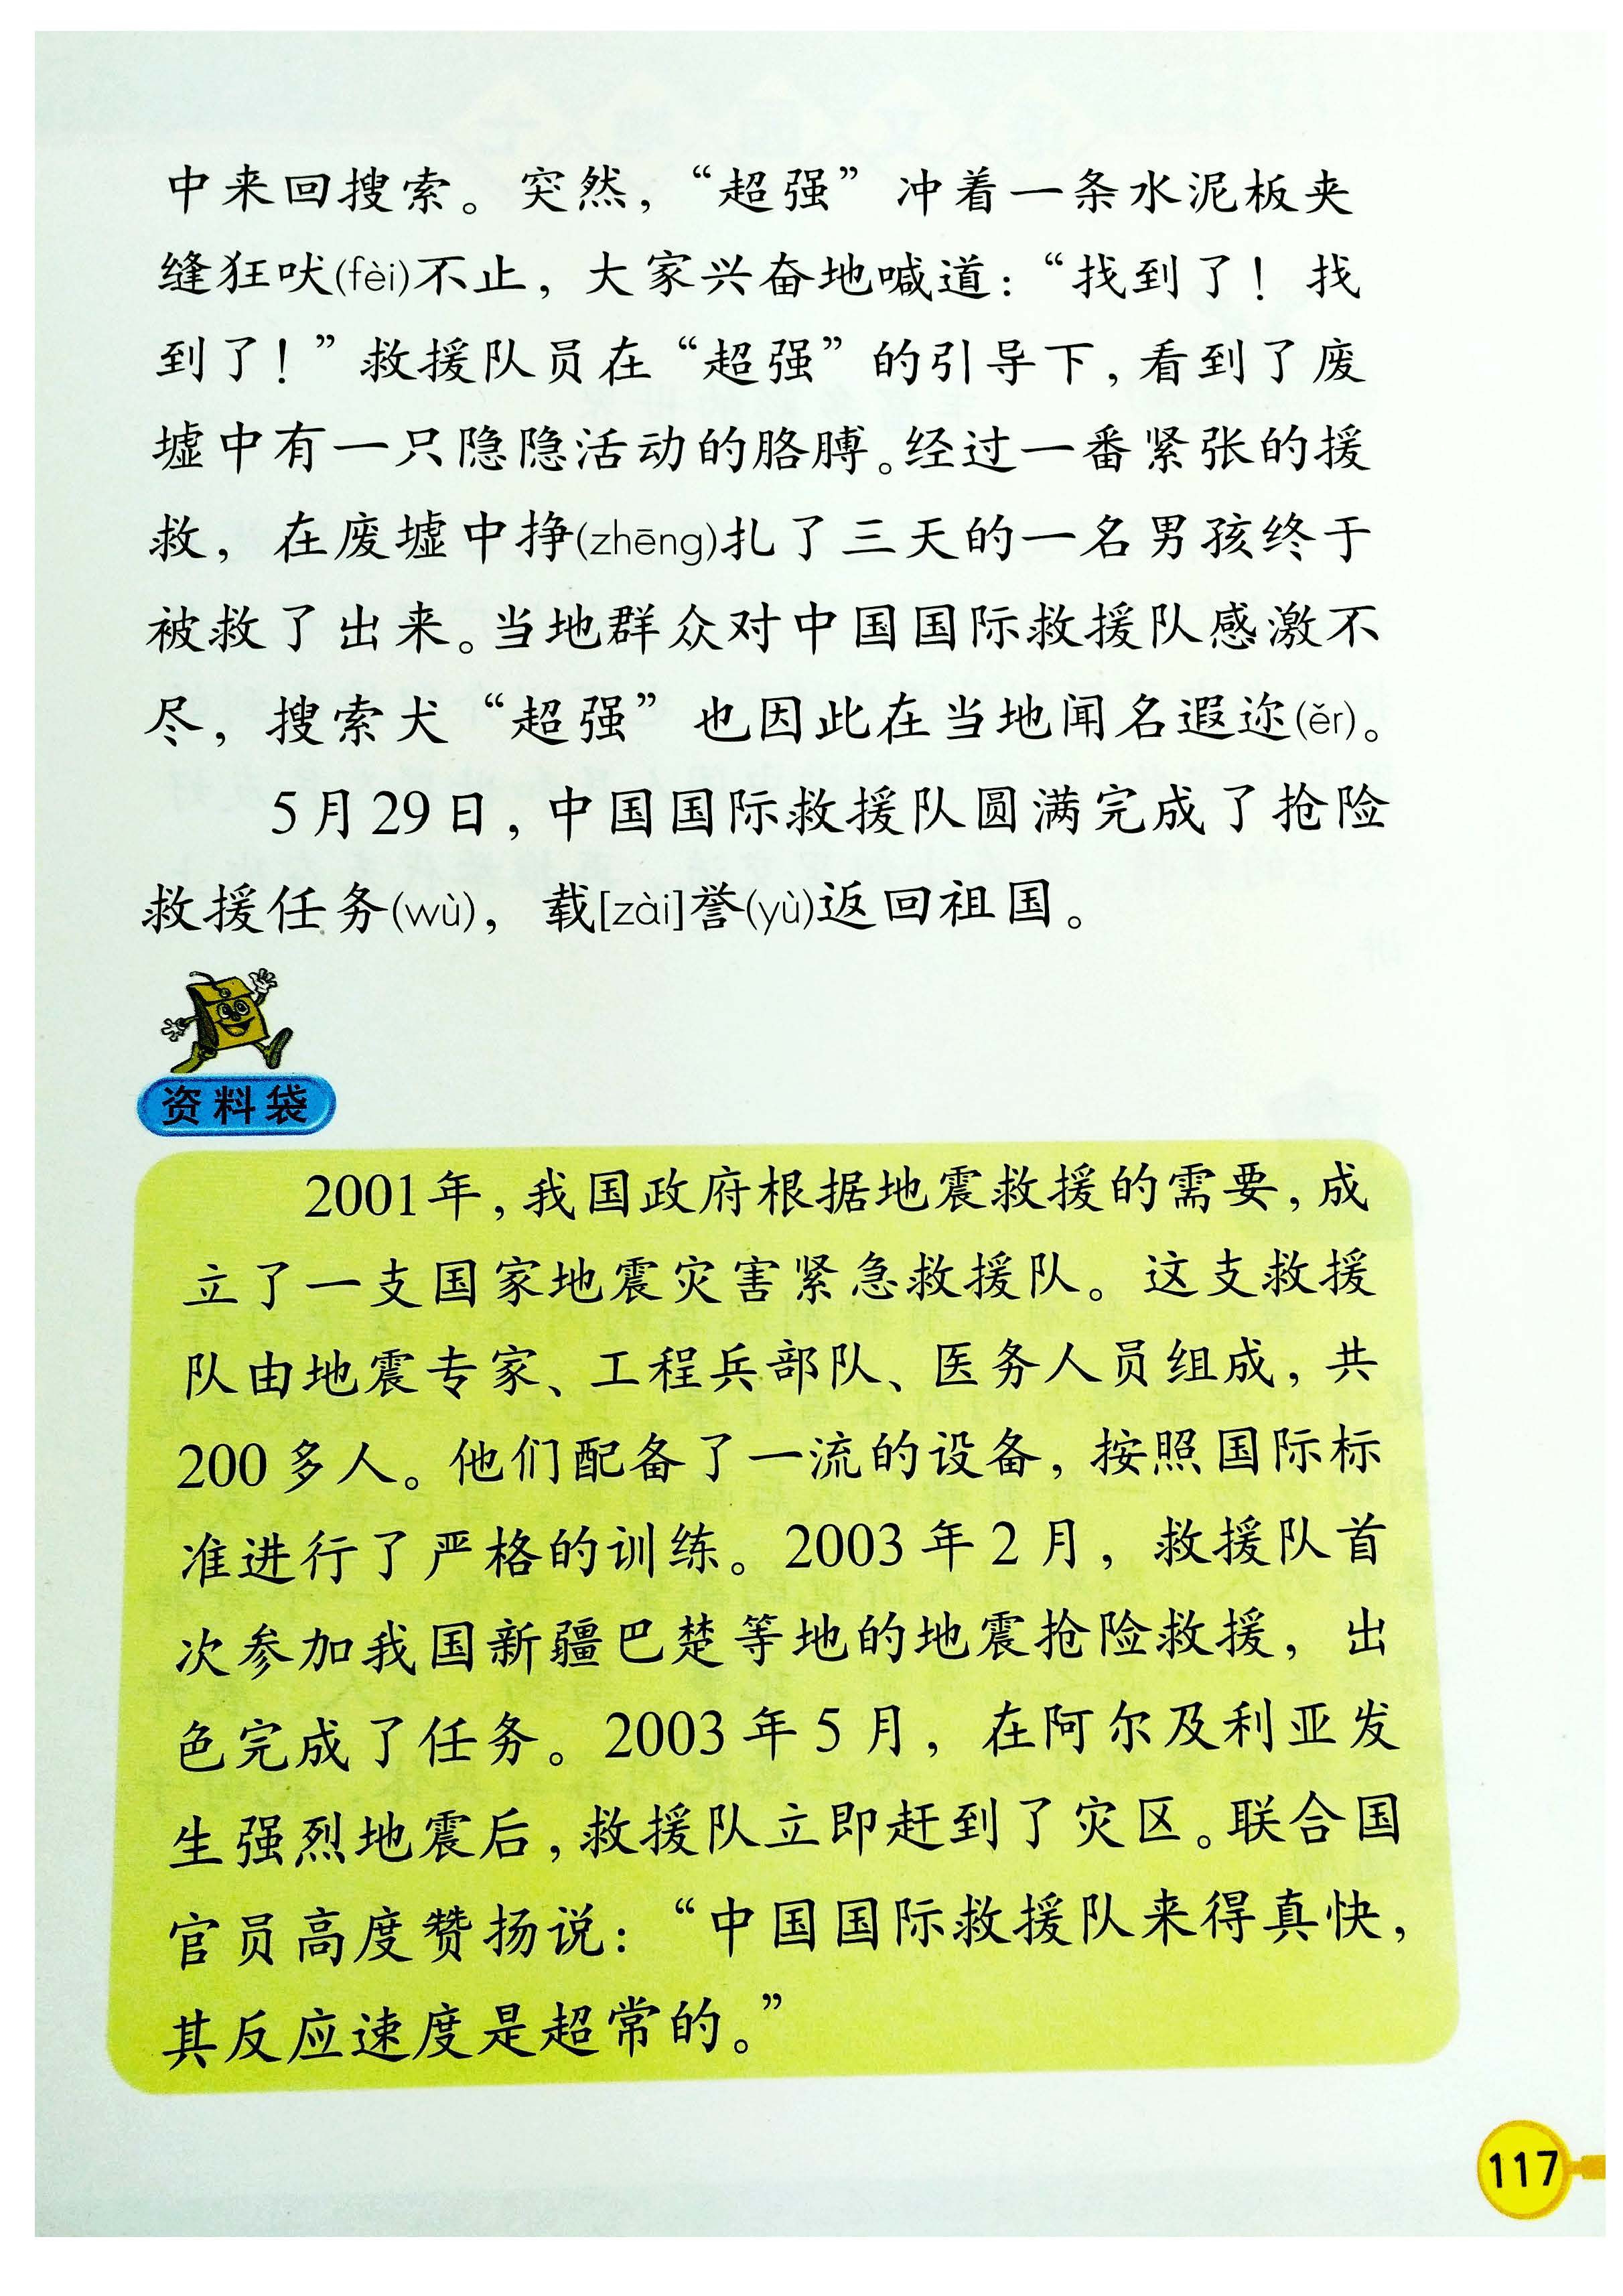 中来回搜索。突然，“超强”冲着一条水泥板夹
缝狂吠(fèi)不止，大家兴奋地喊道：“找到了！找
到了！”救援队员在“超强”的引导下，看到了废
墟中有一只隐隐活动的胳膊。经过一番紧张的援
救，在废墟中挣(zhēng)扎了三天的一名男孩终于
被救了出来。当地群众对中国国际救援队感激不
尽，搜索犬“超强”也因此在当地闻名遐迩(ěr)。
5月29日，中国国际救援队圆满完成了抢险
救援任务(wù)，载[zài]誉(yù)返回祖国。
资料袋
2001年，我国政府根据地震救援的需要，成
立了一支国家地震灾害紧急救援队。这支救援
队由地震专家、工程兵部队、医务人员组成，共
200多人。他们配备了一流的设备，按照国际标
准进行了严格的训练。2003年2月，救援队首
次参加我国新疆巴楚等地的地震抢险救援，出
色完成了任务。2003年5月，在阿尔及利亚发
生强烈地震后，救援队立即赶到了灾区。联合国
官员高度赞扬说：“中国国际救援队来得真快，
其反应速度是超常的。”
117